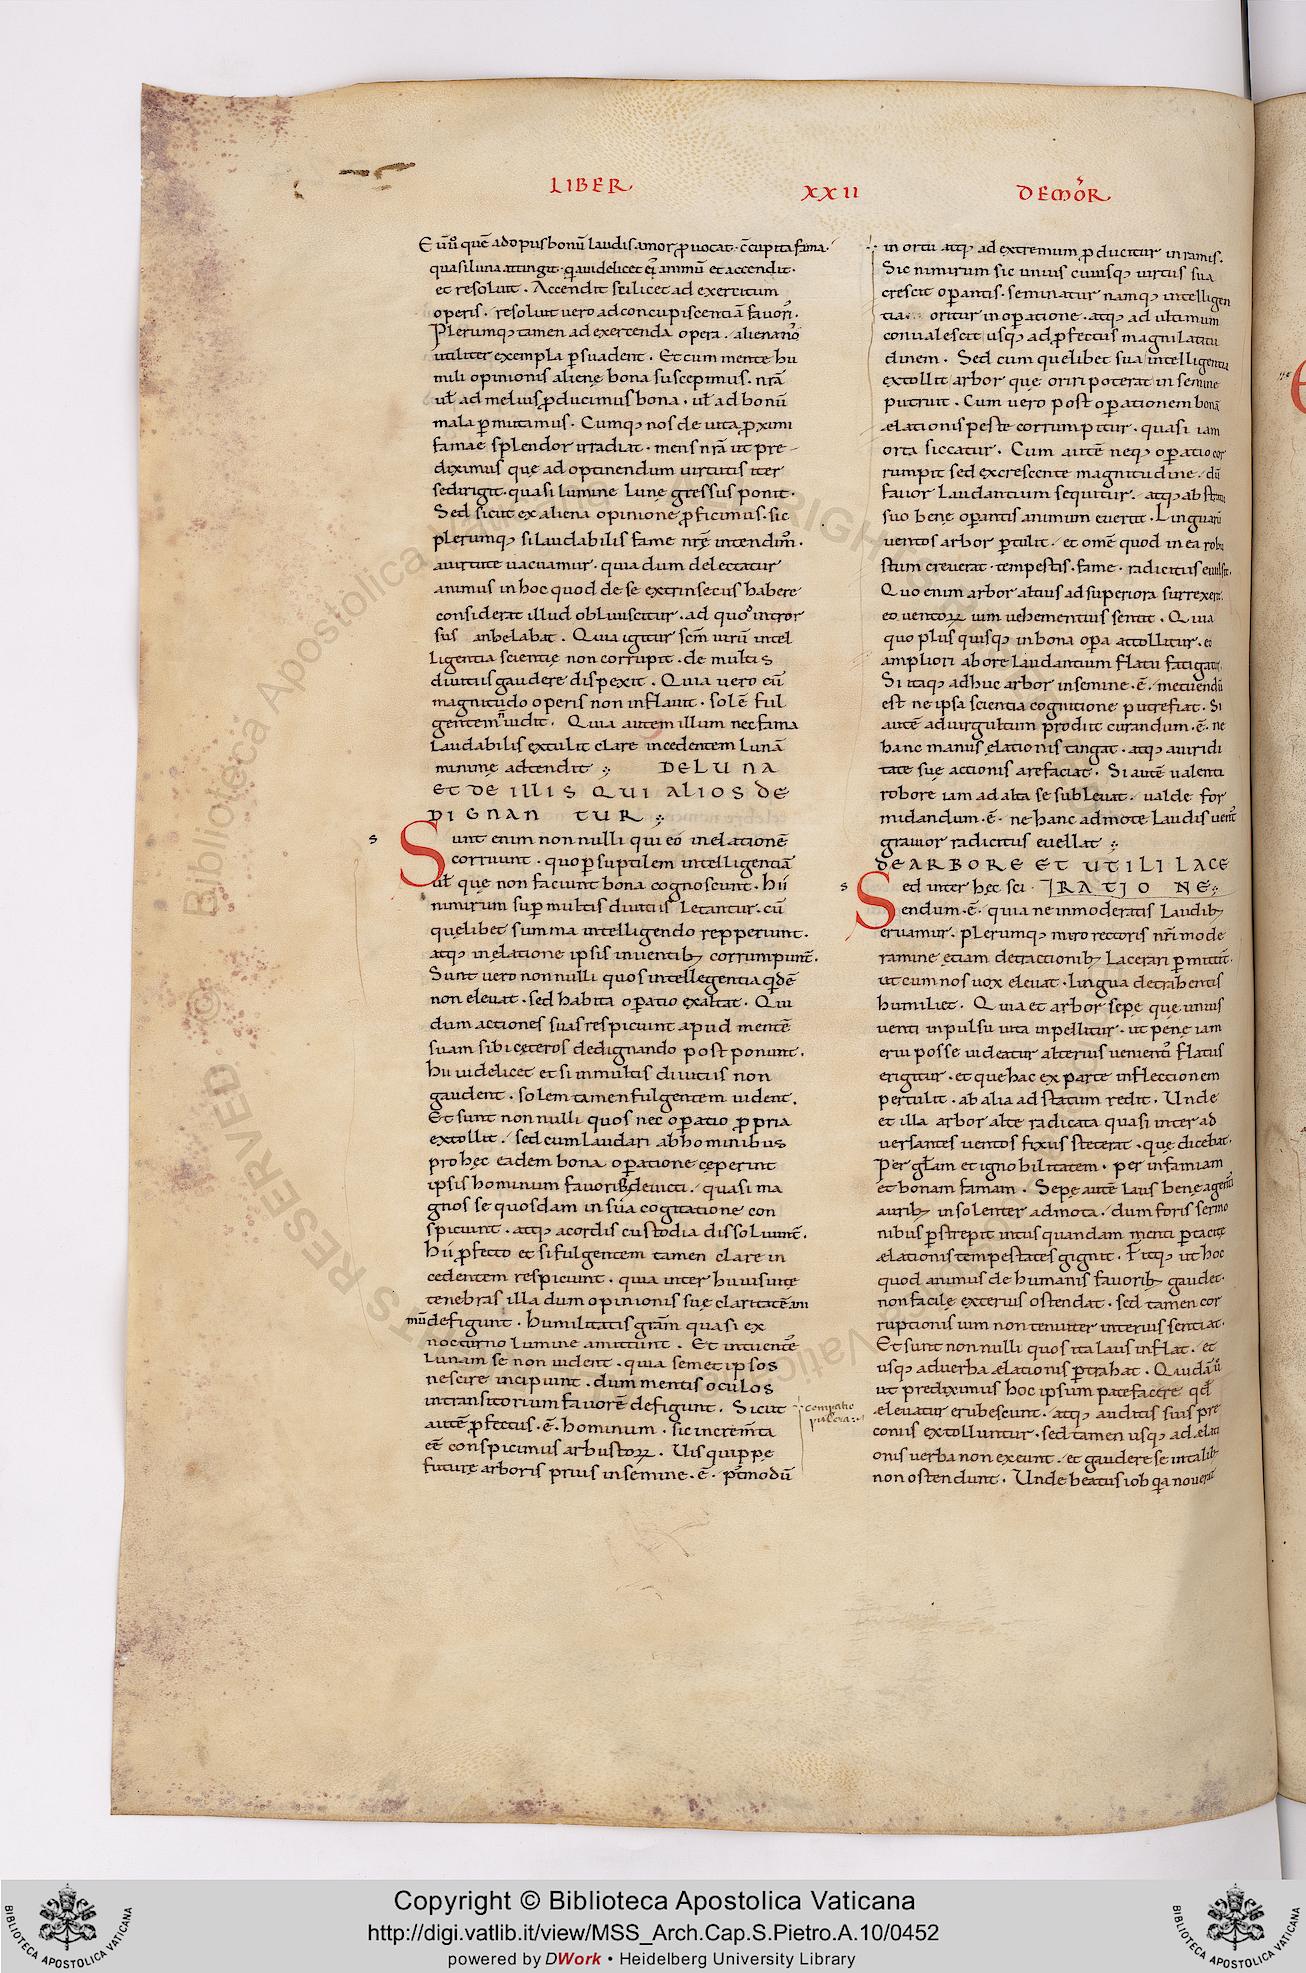 LIBER XXII DEMOR̃
E uũ quẽ ad opus bonũ laudis amor ꝓuocat. c̃cupita fama.
quasi luna attingit. q̃ uidelicet ei᷒ animũ et accendit.
et resoluit. Accendit scilicet ad exercitum
operis. resoluit uero ad concupiscentiã fauor̃.
Plerumqꝫ tamen ad exercenda opera. alienar̃
utiliter exempla ꝑsuadent. Et cum mente hu
mili opinionis aliene bona suscepimus. nr̃ã
ul̃ ad melius ꝓducimus bona. ul̃ ad bonũ
mala ꝑmutamus. Cumqꝫ nos de uita ꝓximi
famae splendor irradiat. mens nr̃a ut pre
diximus que ad optinendum uirtutis iter
se dirigit. quasi lumine lune gressus ponit.
Sed sicut ex aliena opinione ꝓficimus. sic
plerumqꝫ si laudabilis fame nrę̃ intendim᷒.
a uirtute uacuamur. quia dum delectatur
animus in hoc quod de se extrinsecus habere
considerat illud obliuiscitur. ad quo᷒ intror
sus anhelabat. Quia igitur scm̃ uirũ intel
ligentia scientię non corrupit. de multis
diuitiis gaudere dispexit. Quia uero cũ
magnitudo operis non inflauit. solẽ ful
gentem uidit. Quia autem illum nec fama
laudabilis extulit clare incedentem lunã
minime adtendit ⁘ DE LUNA
ET DE ILLIS QUI ALIOS DE
DIGNANTUR ⁘
s
Sunt enim non nulli qui eo in elationẽ
corruunt. quo ꝑ suptilem intelligentiã
ul̃ que non faciunt bona cognoscunt. Hii
nimirum suꝑ multis diuitiis letantur. cũ
quelibet summa intelligendo repperiunt.
atqꝫ in elatione ipsis inuentibꝫ corrumpunt̃.
Sunt uero non nulli quos intellegentia qidẽ
non eleuat. sed habita oꝑatio exaltat. Qui
dum actiones suas respiciunt apud mentẽ
suam sibi ceteros dedignando post ponunt.
Hii uidelicet et si in multis diuitiis non
gaudent. solem tamen fulgentem uident.
Et sunt non nulli quos nec oꝑatio ꝓpria
extollit. sed cum laudari ab hominibus
pro hęc eadem bona oꝑatione cęperint
ipsis hominum fauoribꝫ deuicti. quasi ma
gnos se quosdam in sua cogitatione con
spiciunt. atqꝫ a cordis custodia dissoluunt̃.
Hii ꝓfecto et si fulgentem tamen clare in
cedentem respiciunt. quia inter huius uite
tenebras illa dum opinionis sue claritatẽ ani
mũ defigunt. humilitatis grãm quasi ex
nocturno lumine amittunt. Et intuentẽ
lunam se non uident. quia semet ipsos
nescire incipiunt. dum mentis oculos
in transitorium fauorẽ defigunt. Sicut
autẽ ꝓfectus. ẽ. hominum. sic increm̃ta
eẽ conspicimus arbustoꝝ. Uis quippe
future arboris prius in semine. ẽ. pt̃modũ
comꝑatio
pulcra
in ortu atqꝫ ad extremum ꝓducitur in ramis.
Sic nimirum sic unius cuiusqꝫ uirtus sua
crescit oꝑantis. seminatur namqꝫ intelligen
tia. oritur in oꝑatione. atqꝫ ad ultimum
conualescit usqꝫ ad ꝓfectus magni latitu
dinem. Sed cum quelibet sua intelligentia
extollit arbor que oriri poterat in semine
putruit. Cum uero post oꝑationem bonã
ęlationis peste corrumpitur. quasi iam
orta siccatur. Cum autẽ neqꝫ oꝑatio cor
rumpit sed excrescente magnitudine. dũ
fauor laudantium sequitur. atqꝫ ab statu
suo bene oꝑantis animum euertit. Linguarũ
uentos arbor ꝑtulit. et omẽ quod in ea robu
stum creuerat. tempestas. fame. radicitus euulsit.
Quo enim arbor altius ad superiora surrexerit.
eo uentoꝝ uim uehementius sentit. Quia
quo plus quisqꝫ in bona oꝑa attollitur. ei
ampliori ab ore laudantium flatu fatigatur.
Si itaqꝫ adhuc arbor in semine. ẽ. metuendũ
est ne ipsa scientia cognitione putrefiat. Si
autẽ ad uirgultum prodiit curandum. ẽ. ne
hanc manus elationis tangat. atqꝫ a uiridi
tate sue actionis arefaciat. Si autẽ ualenti
robore iam ad alta se subleuat. ualde for
midandum. ẽ. ne hanc admote laudis uent᷒
grauior radicitus euellat ⁘
DE ARBORE ET UTILI LACE
s
Sed inter hęc sci RATIONE ⁘
endum. ẽ. quia ne inmoderatis laudibꝫ
eruamur. plerumqꝫ miro rectoris nr̃i mode
ramine etiam detractionibꝫ lacerari ꝑmittit̃.
ut cum nos uox eleuat. lingua detrahentis
humiliet. Quia et arbor sepe que unius
uenti inpulsu uita inpellitur. ut pene iam
erui posse uideatur alterius uenienti᷒ flatus
erigitur. et que hac ex parte inflectionem
pertulit. ab alia ad statum redit. Unde
et illa arbor alte radicata quasi inter ad
uersantes uentos fixus steterat. quę dicebat.
Per gl̃am et ignobilitatem. per infamiam
et bonam famam. Sepe autẽ laus bene agenti᷒
auribꝫ insolenter admota. dum foris sermo
nibus ꝑstrepit intus quandam menti ꝑtacite
ęlationis tempestates gignit. Fitqꝫ ut hoc
quod animus de humanis fauoribꝫ gaudet.
non facile exterius ostendat. sed tamen cor
ruptionis uim non tenuiter interius sentiat.
Et sunt non nulli quos ita laus inflat. et
usqꝫ ad uerba ęlationis ꝑtrahat. Quidã ũ
ut prediximus hoc ipsum patefacere qd̃
eleuatur erubescunt. atqꝫ auditis suis pre
coniis extolluntur. sed tamen usqꝫ ad elati
onis uerba non exeunt. et gaudere se in talibꝫ
non ostendunt. Unde beatus iob qa nouerat
Copyright © Biblioteca Apostolica Vaticana
http://digi.vatlib.it/view/MSS_Arch.Cap.S.Pietro.A.10/0452
powered by DWork • Heidelberg University Library